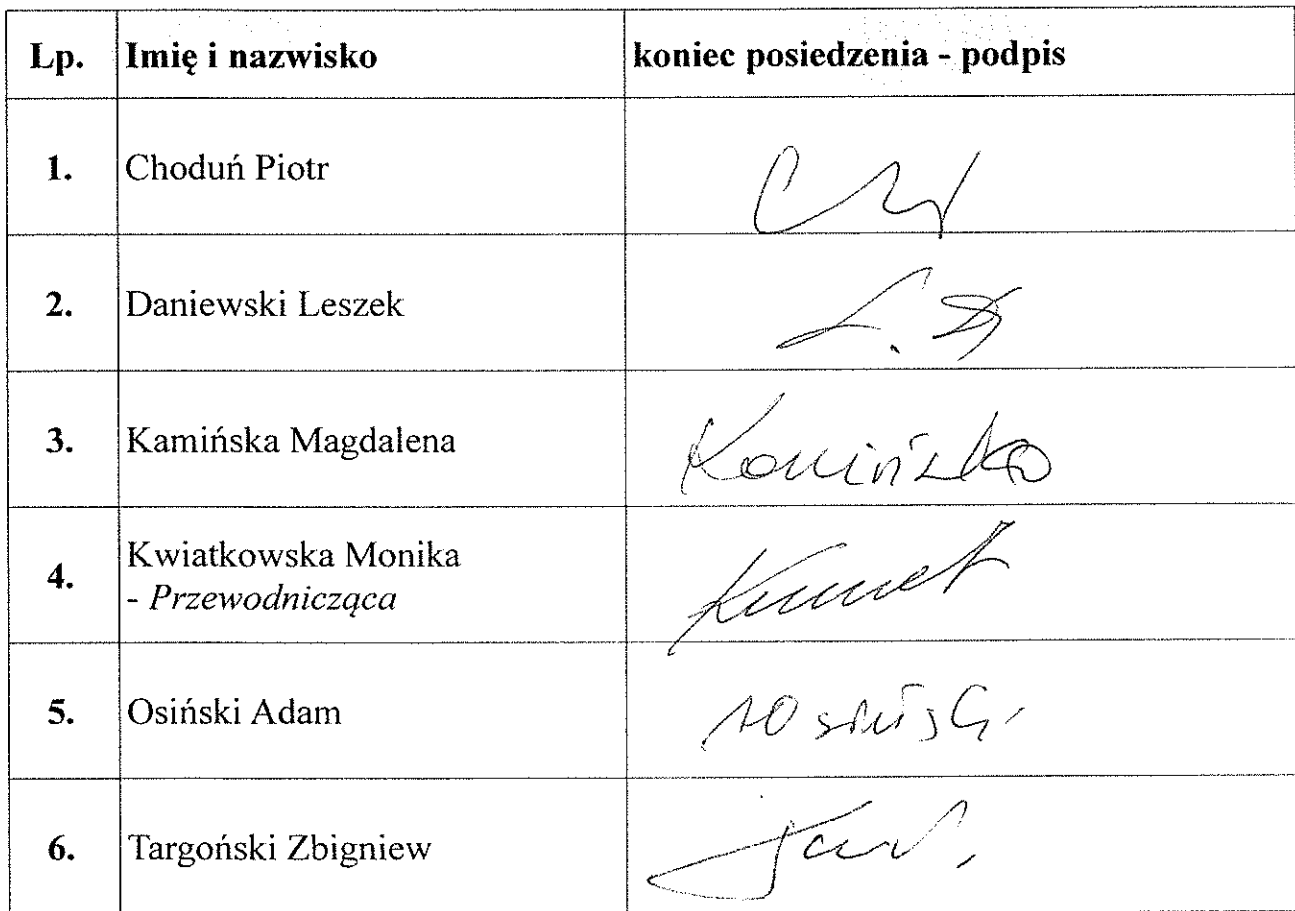 Lp. Imię i nazwisko koniec posiedzenia - podpis
1. Choduń Piotr
2. Daniewski Leszek L. D
3. Kamińska Magdalena Kamińska
4. Kwiatkowska Monika
- Przewodnicząca
5. Osiński Adam AOsiński
6. Targoński Zbigniew